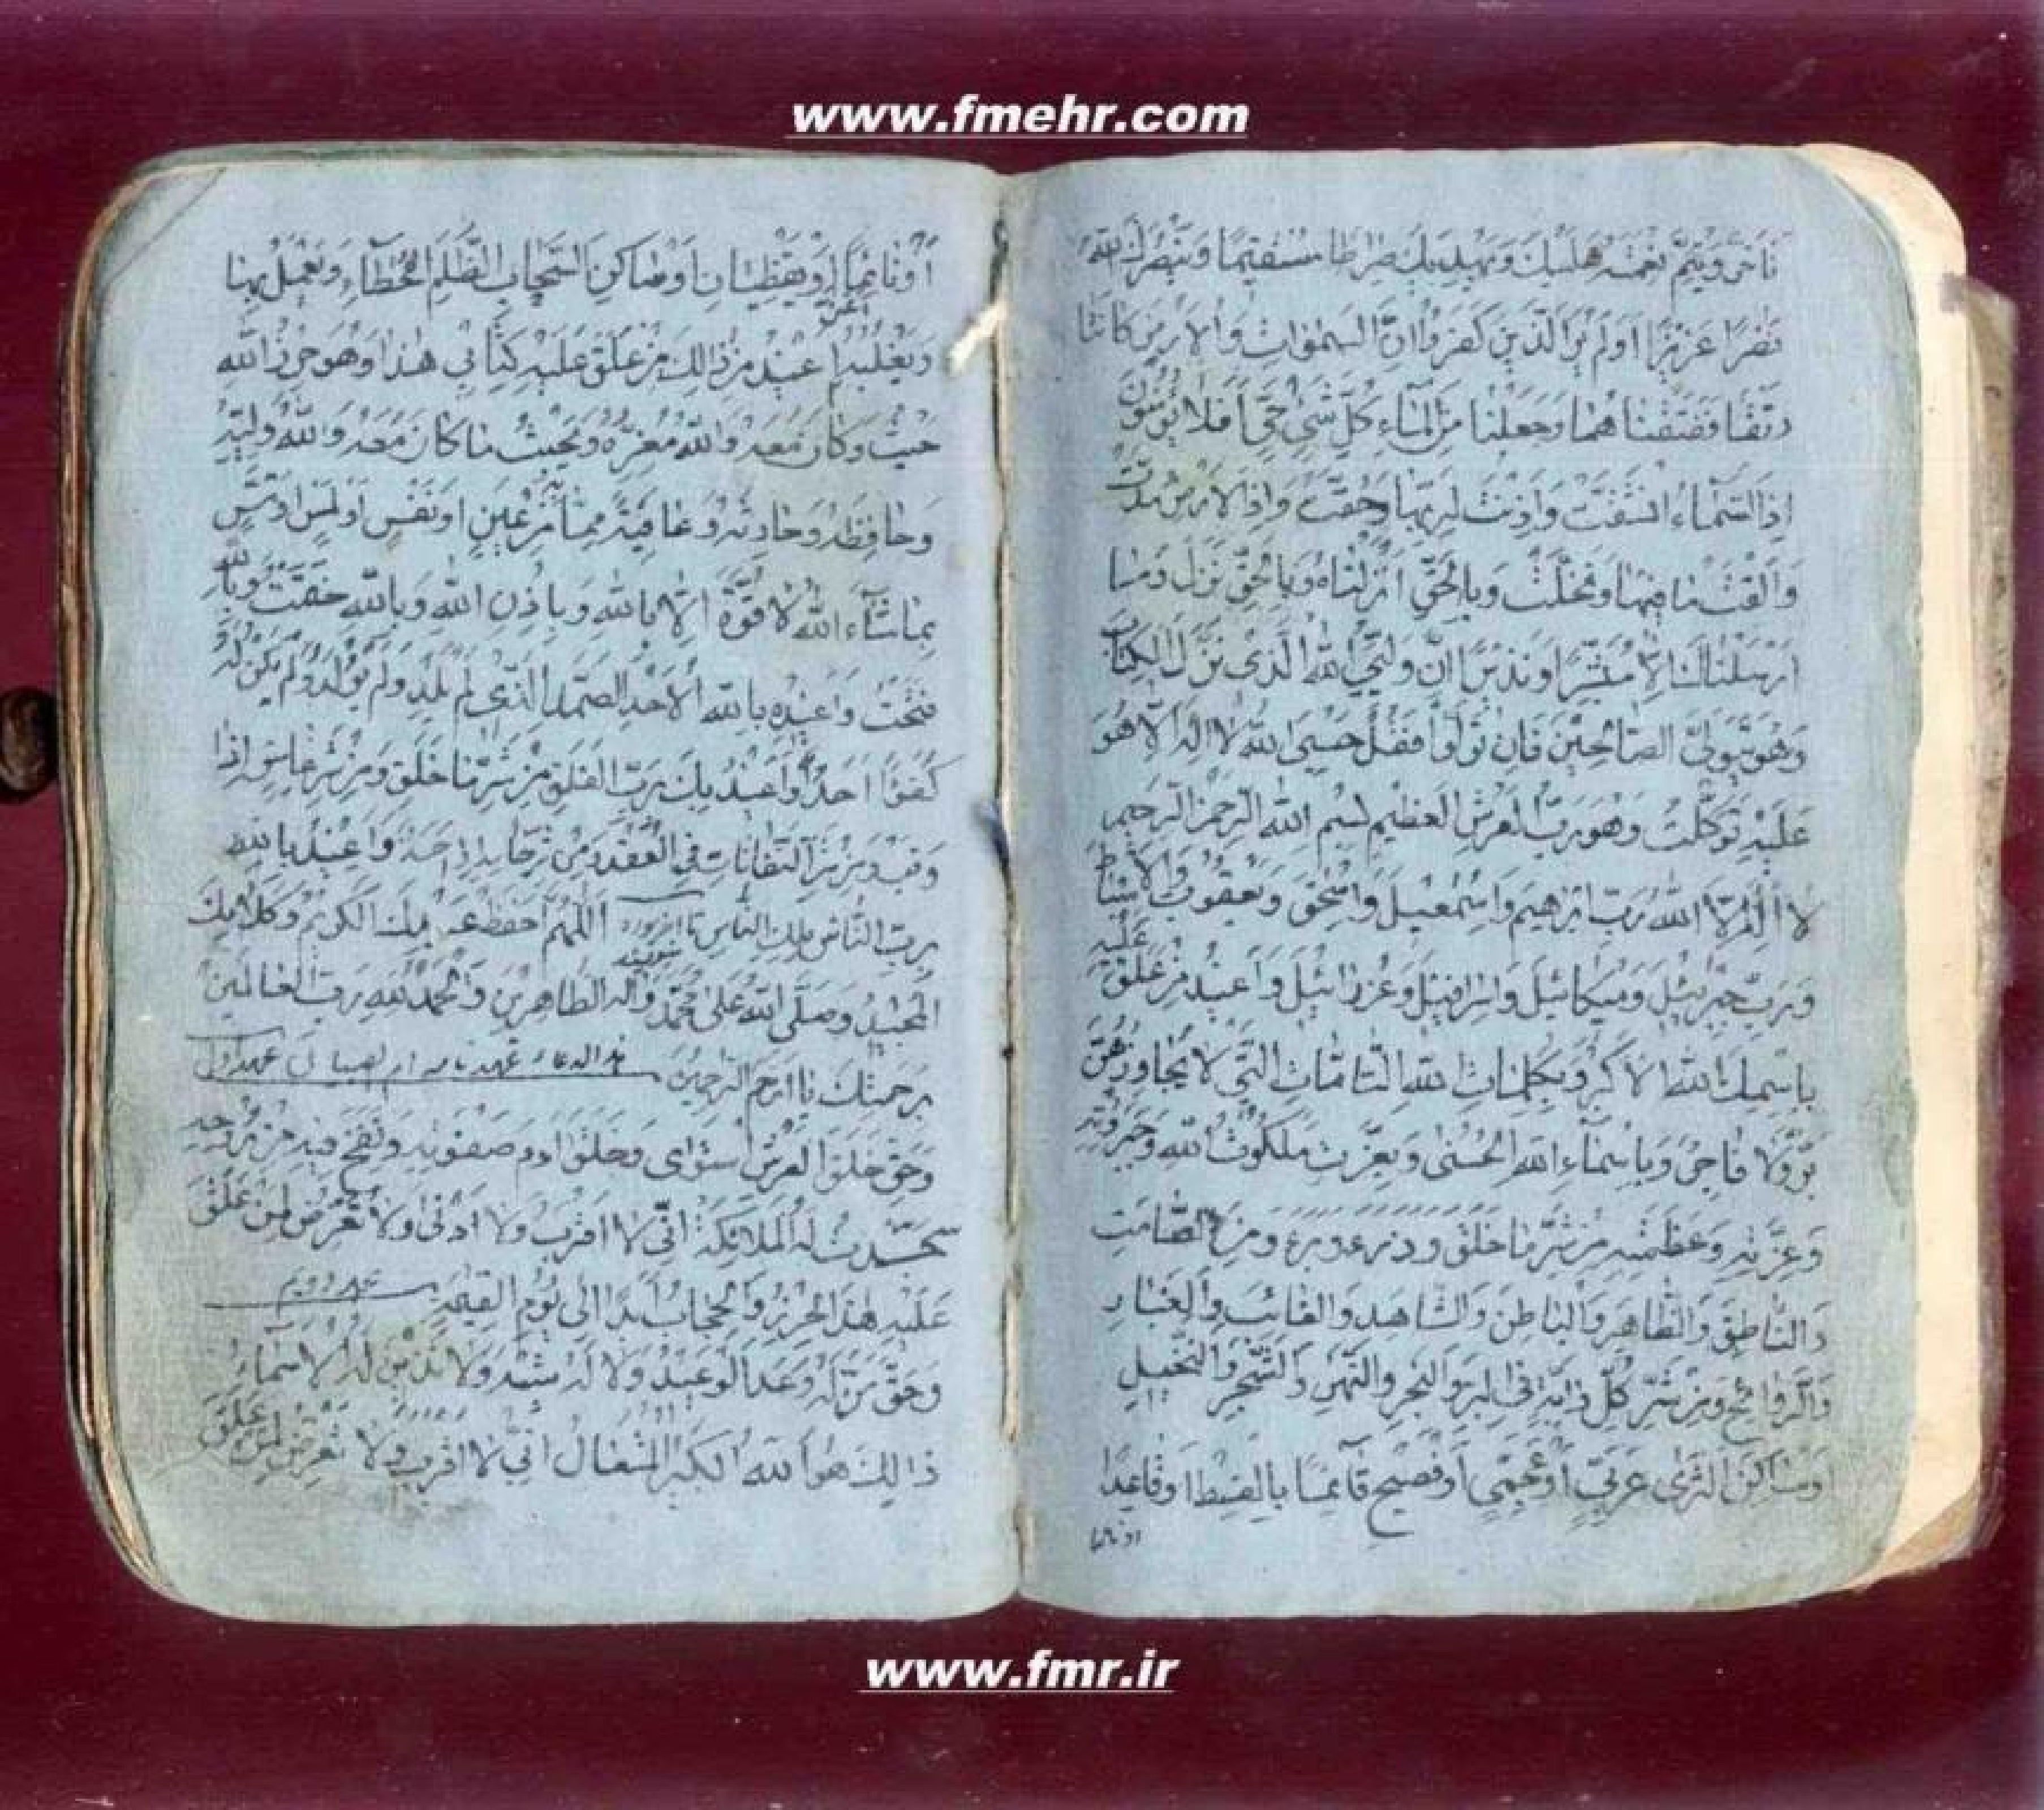 www.fmehr.com
تَأَخَّرَ وَيُتِمَّ نِعْمَتَهُ عَلَيْكَ وَيَهْدِيَكَ صِرَاطًا مُسْتَقِيمًا وَيَنْصُرَكَ اللهُ
نَصْرًا عَزِيزًا أَوَلَمْ يَرَ الَّذِينَ كَفَرُوا أَنَّ السَّمٰوَاتِ وَالْأَرْضَ كَانَتَا
رَتْقًا فَفَتَقْنَاهُمَا وَجَعَلْنَا مِنَ الْمَاءِ كُلَّ شَيْءٍ حَيٍّ أَفَلَا يُؤْمِنُونَ
إِذَا السَّمَاءُ انْشَقَّتْ وَأَذِنَتْ لِرَبِّهَا وَحُقَّتْ وَإِذَا الْأَرْضُ مُدَّتْ
وَأَلْقَتْ مَا فِيهَا وَتَخَلَّتْ وَبِالْحَقِّ أَنْزَلْنَاهُ وَبِالْحَقِّ نَزَلَ وَمَا
أَرْسَلْنَاكَ إِلَّا مُبَشِّرًا وَنَذِيرًا إِنَّ وَلِيِّيَ اللهُ الَّذِي نَزَّلَ الْكِتَابَ
وَهُوَ يَتَوَلَّى الصَّالِحِينَ فَإِنْ تَوَلَّوْا فَقُلْ حَسْبِيَ اللهُ لَا إِلٰهَ إِلَّا هُوَ
عَلَيْهِ تَوَكَّلْتُ وَهُوَ رَبُّ الْعَرْشِ الْعَظِيمِ بِسْمِ اللهِ الرَّحْمٰنِ الرَّحِيمِ
لَا إِلٰهَ إِلَّا اللهُ رَبُّ إِبْرٰهِيمَ وَإِسْمٰعِيلَ وَإِسْحٰقَ وَيَعْقُوبَ وَالْأَسْبَاطِ
وَرَبُّ جِبْرَئِيلَ وَمِيكَائِيلَ وَإِسْرَافِيلَ وَعِزْرَائِيلَ وَأُعِيذُ مَنْ عُلِّقَ عَلَيْهِ
بِاسْمِكَ اللهِ الْأَكْبَرِ وَبِكَلِمَاتِ اللهِ التَّامَّاتِ الَّتِي لَا يُجَاوِزُهُنَّ
بَرٌّ وَلَا فَاجِرٌ وَبِأَسْمَاءِ اللهِ الْحُسْنٰى وَبِعِزَّتِ مَلَكُوتِ اللهِ وَجَبَرُوتِهِ
وَعِزَّتِهِ وَعَظَمَتِهِ مِنْ شَرِّ مَا خَلَقَ وَذَرَءَ وَبَرَءَ وَمِنَ الصَّامِتِ
وَالنَّاطِقِ وَالظَّاهِرِ وَالْبَاطِنِ وَالشَّاهِدِ وَالْغَائِبِ
وَمِنْ شَرِّ كُلِّ دَابَّةٍ فِي الْبَرِّ وَالْبَحْرِ وَالنَّهَرِ وَالشَّجَرِ وَالنَّخِيلِ
وَسَاكِنِ الثَّرٰى عَرَبِيٍّ أَوْ عَجَمِيٍّ أَوْ فَصِيحٍ قَائِمًا بِالْقِسْطِ أَوْ قَاعِدًا
أَوْ نَائِمًا أَوْ يَقْظَانَ أَوْ سَاكِنِ السَّحَابِ الظُّلَمِ
هٰذَا وَهُوَ حِرْزُ اللهِ
حَيْثُ وَكَانَ مَعَهُ وَاللهُ مُعِزُّهُ وَبِحَيْثُ مَا كَانَ مَعَهُ وَاللهُ وَلِيُّهُ
وَحَافِظُهُ أَوْ نَفْسٍ أَوْ لَمْسٍ
بِمَا شَاءَ اللهُ لَا قُوَّةَ إِلَّا بِاللهِ وَبِإِذْنِ اللهِ وَبِاللهِ وَبِاللهِ
وَأُعِيذُهُ بِاللهِ الْأَحَدِ الصَّمَدِ الَّذِي لَمْ يَلِدْ وَلَمْ يُولَدْ وَلَمْ يَكُنْ لَهُ
كُفُوًا أَحَدٌ وَأُعِيذُ بِكَ بِرَبِّ الْفَلَقِ مِنْ شَرِّ مَا خَلَقَ وَمِنْ شَرِّ غَاسِقٍ إِذَا
وَقَبَ وَمِنْ شَرِّ النَّفَّاثَاتِ فِي الْعُقَدِ وَمِنْ شَرِّ حَاسِدٍ إِذَا حَسَدَ وَأُعِيذُ بِاللهِ
بِرَبِّ النَّاسِ مَلِكِ النَّاسِ تا آخر سوره اللّٰهُمَّ احْفَظْ الْكَرِيمِ وَكَلَامِكَ
الْمَجِيدِ وَصَلَّى اللهُ عَلٰى مُحَمَّدٍ وَآلِهِ الطَّاهِرِينَ وَالْحَمْدُ لِلّٰهِ رَبِّ الْعَالَمِينَ
بِرَحْمَتِكَ يَا أَرْحَمَ الرَّاحِمِينَ عهدنامه ام الصبيان عهد اول
وَحَقِّ خَلَقَ الْعَرْشَ اسْتَوٰى وَخَلَقَ آدَمَ صَفْوَتِهِ وَنَفَخَ فِيهِ مِنْ رُوحِهِ
سَجَدَتْ لَهُ الْمَلَائِكَةُ أَنِّي لَا أَقْرَبُ وَلَا أَدْنٰى وَلَا تَعَرَّضَ لِمَنْ عُلِّقَ
عَلَيْهِ هٰذَا الْحِرْزُ وَالْحِجَابُ أَبَدًا إِلٰى يَوْمِ الْقِيٰمَةِ عهد دويم
وَحَقِّ مَنْ لَهُ وَعْدُ الْوَعِيدِ
ذَالِكَ هُوَ اللهُ الْكَبِيرُ الْمُتَعَالُ أَنِّي لَا أَقْرَبُ وَلَا تَعَرَّضَ لِمَنْ عُلِّقَ
www.fmr.ir